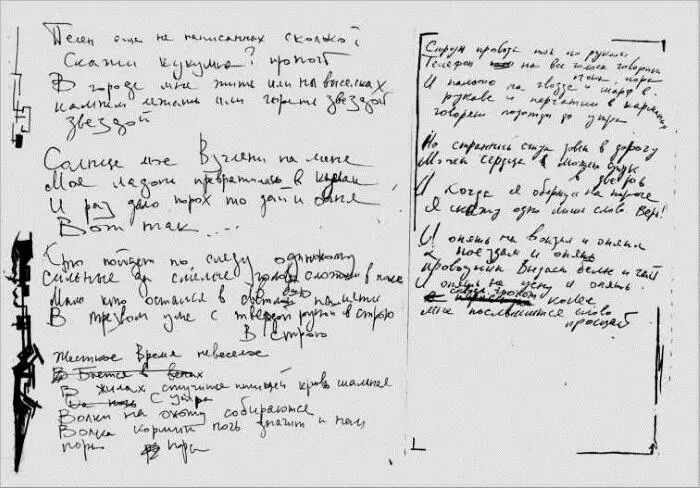 Песен еще не написанных сколько?
Скажи кукушка? пропой
В городе мне жить или на выселках
камнем лежать или гореть звездой
звездой
Солнце мое Взгляни на меня
Моя ладонь превратилась в кулак
И раз дало порох то дай и огня
Вот так ....
Кто пойдет по следу одинокому
сильные да смелые головы сложили в поле
Мало кто остался в светлой памяти
В трезвом уме с твердой рукой в строю
В строю
Жесткое Время невеселое
Бьется в венах
В жилах стучится птицей кровь шальная
С утра
Волки на охоту собираются
Волка кормит ночь значит и нам
пора пора
Струн провода ток по рукам
Телефон на все голоса говорит
пока, пора
И пальто на гвозде и шарф в
рукаве и перчатки в карманах
говорят подожди до утра
Но странный стук зовет в дорогу
Может сердца а может стук
в дверь
И когда я обернусь на пороге
Я скажу одно лишь слово. Верь!
И опять на вокзал и опять
к поездам и опять
проводник Выдаст белье и чай
И опять не усну и опять
сквозь грохот
колес
мне послышится слово
прощай